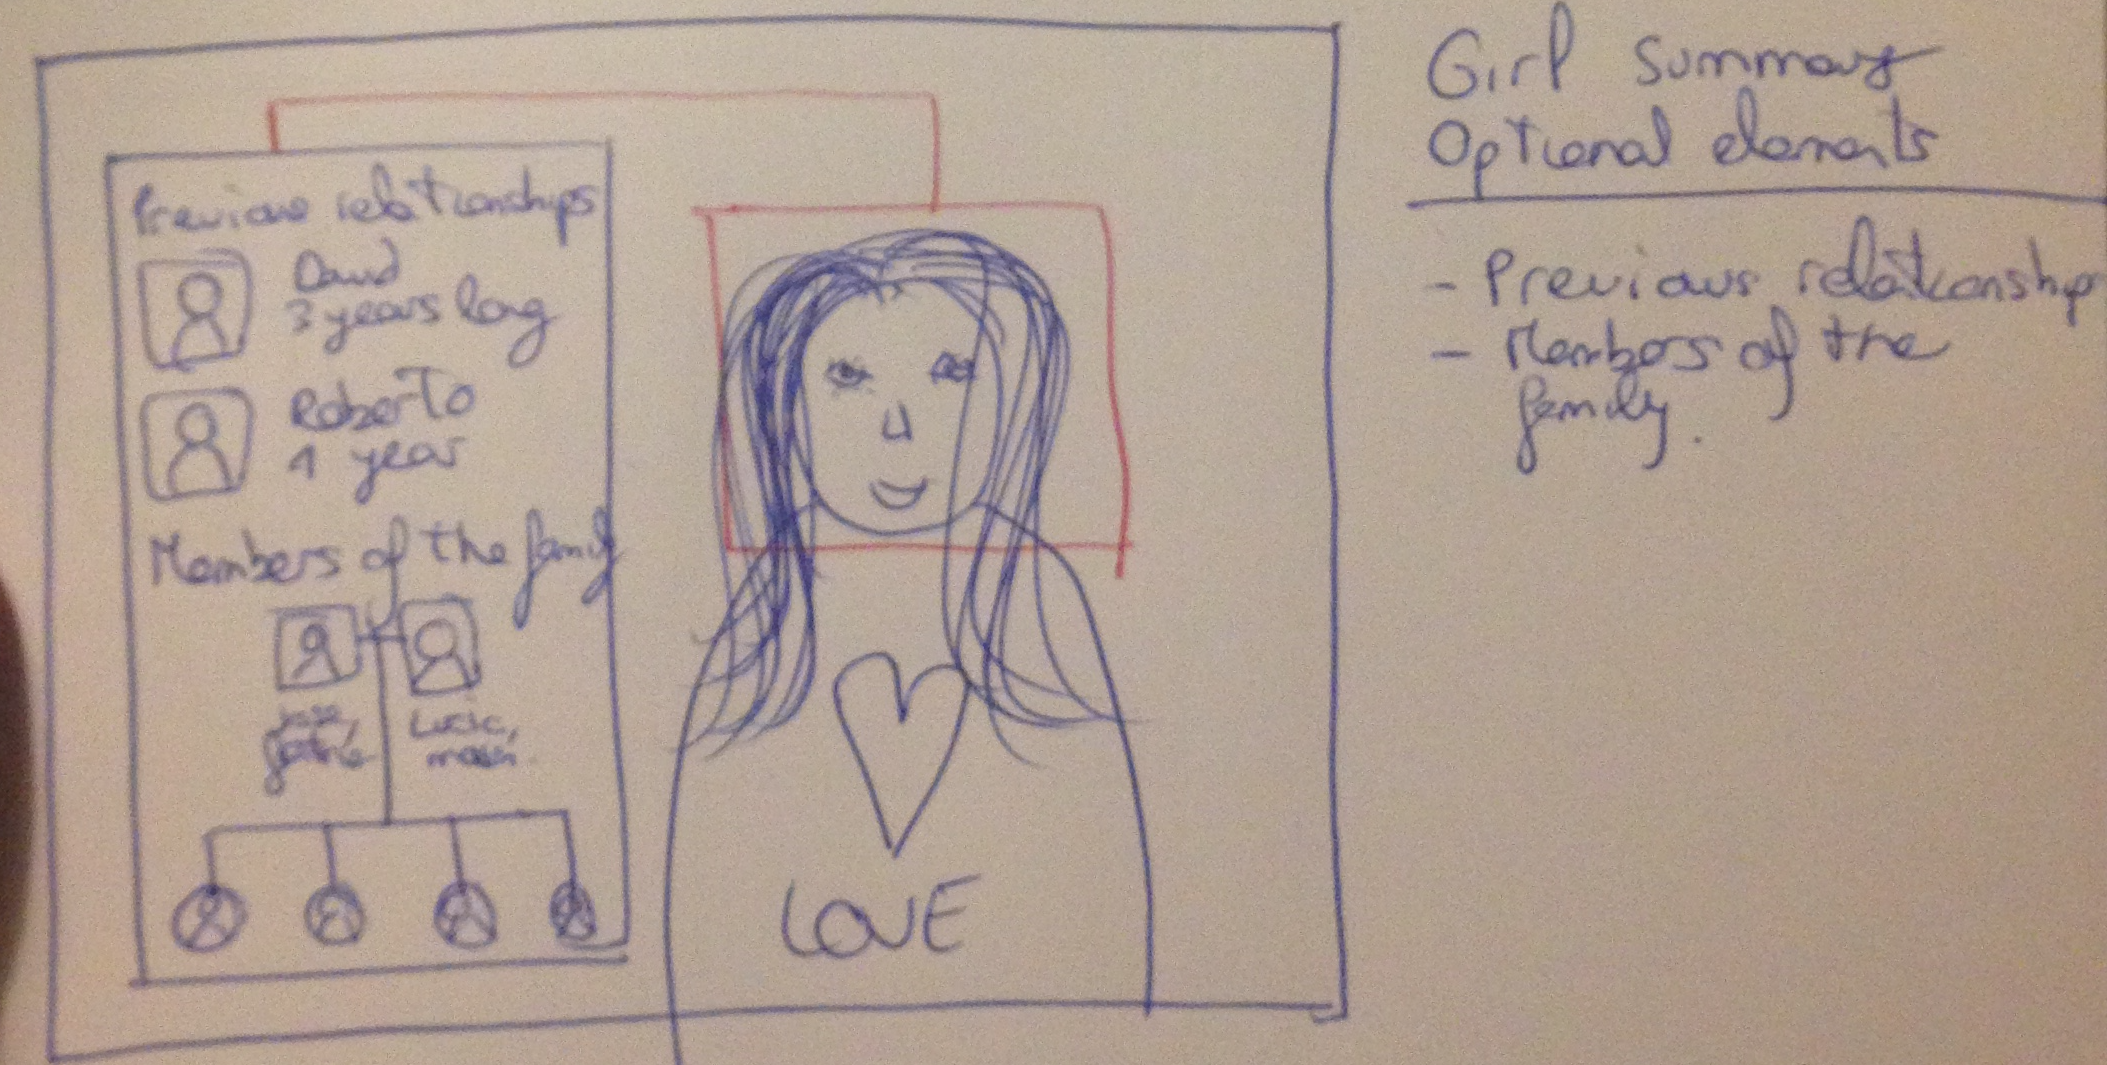 Previous relationships
David
3 years long
Roberto
1 year
Members of the family
Jose,
Lucia,
LOVE
Girl summary
Optional elements
- Previous relationship
- Members of the
family.